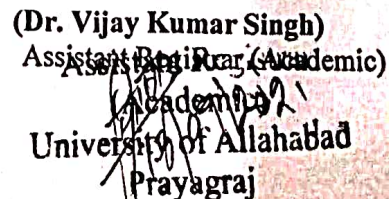 (Dr. Vijay Kumar Singh)
Assistant Registrar (Academic)
(Academic)
University of Allahabad
Prayagraj